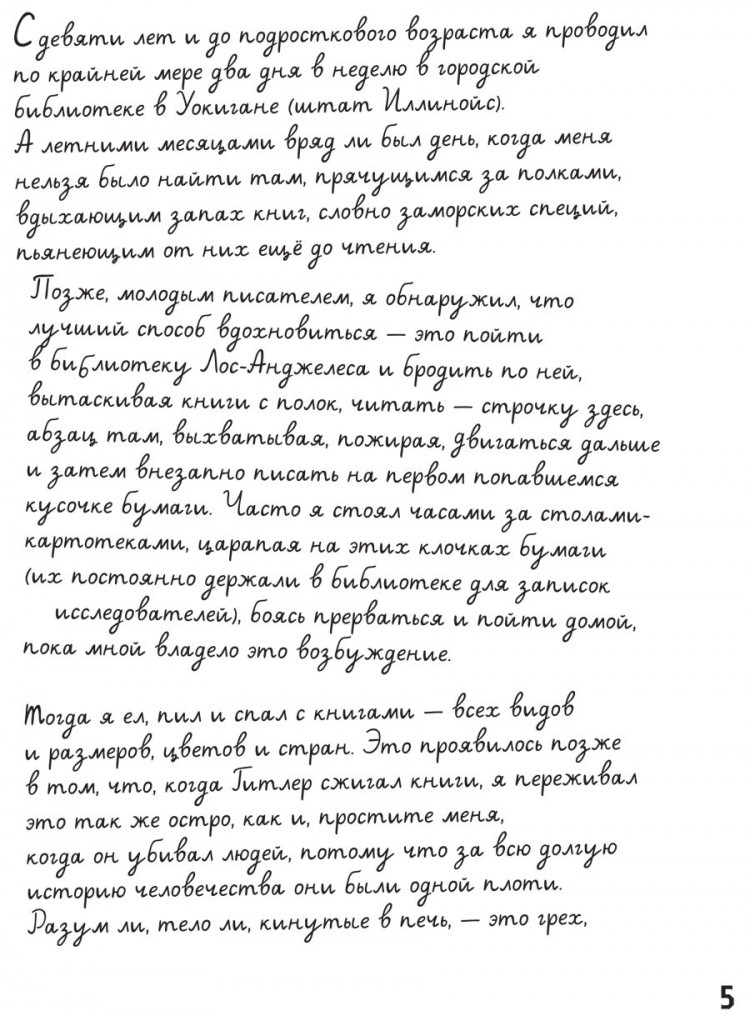 С девяти лет и до подросткового возраста я проводил
по крайней мере два дня в неделю в городской
библиотеке в Уокигане (штат Иллинойс).
А летними месяцами вряд ли был день, когда меня
нельзя было найти там, прячущимся за полками,
вдыхающим запах книг, словно заморских специй,
пьянеющим от них ещё до чтения.
Позже, молодым писателем, я обнаружил, что
лучший способ вдохновиться — это пойти
в библиотеку Лос-Анджелеса и бродить по ней,
вытаскивая книги с полок, читать — строчку здесь,
абзац там, выхватывая, пожирая, двигаться дальше
и затем внезапно писать на первом попавшемся
кусочке бумаги. Часто я стоял часами за столами-
картотеками, царапая на этих клочках бумаги
(их постоянно держали в библиотеке для записок
исследователей), боясь прерваться и пойти домой,
пока мной владело это возбуждение.
Тогда я ел, пил и спал с книгами — всех видов
и размеров, цветов и стран. Это проявилось позже
в том, что, когда Гитлер сжигал книги, я переживал
это так же остро, как и, простите меня,
когда он убивал людей, потому что за всю долгую
историю человечества они были одной плоти.
Разум ли, тело ли, кинутые в печь, — это грех,
5